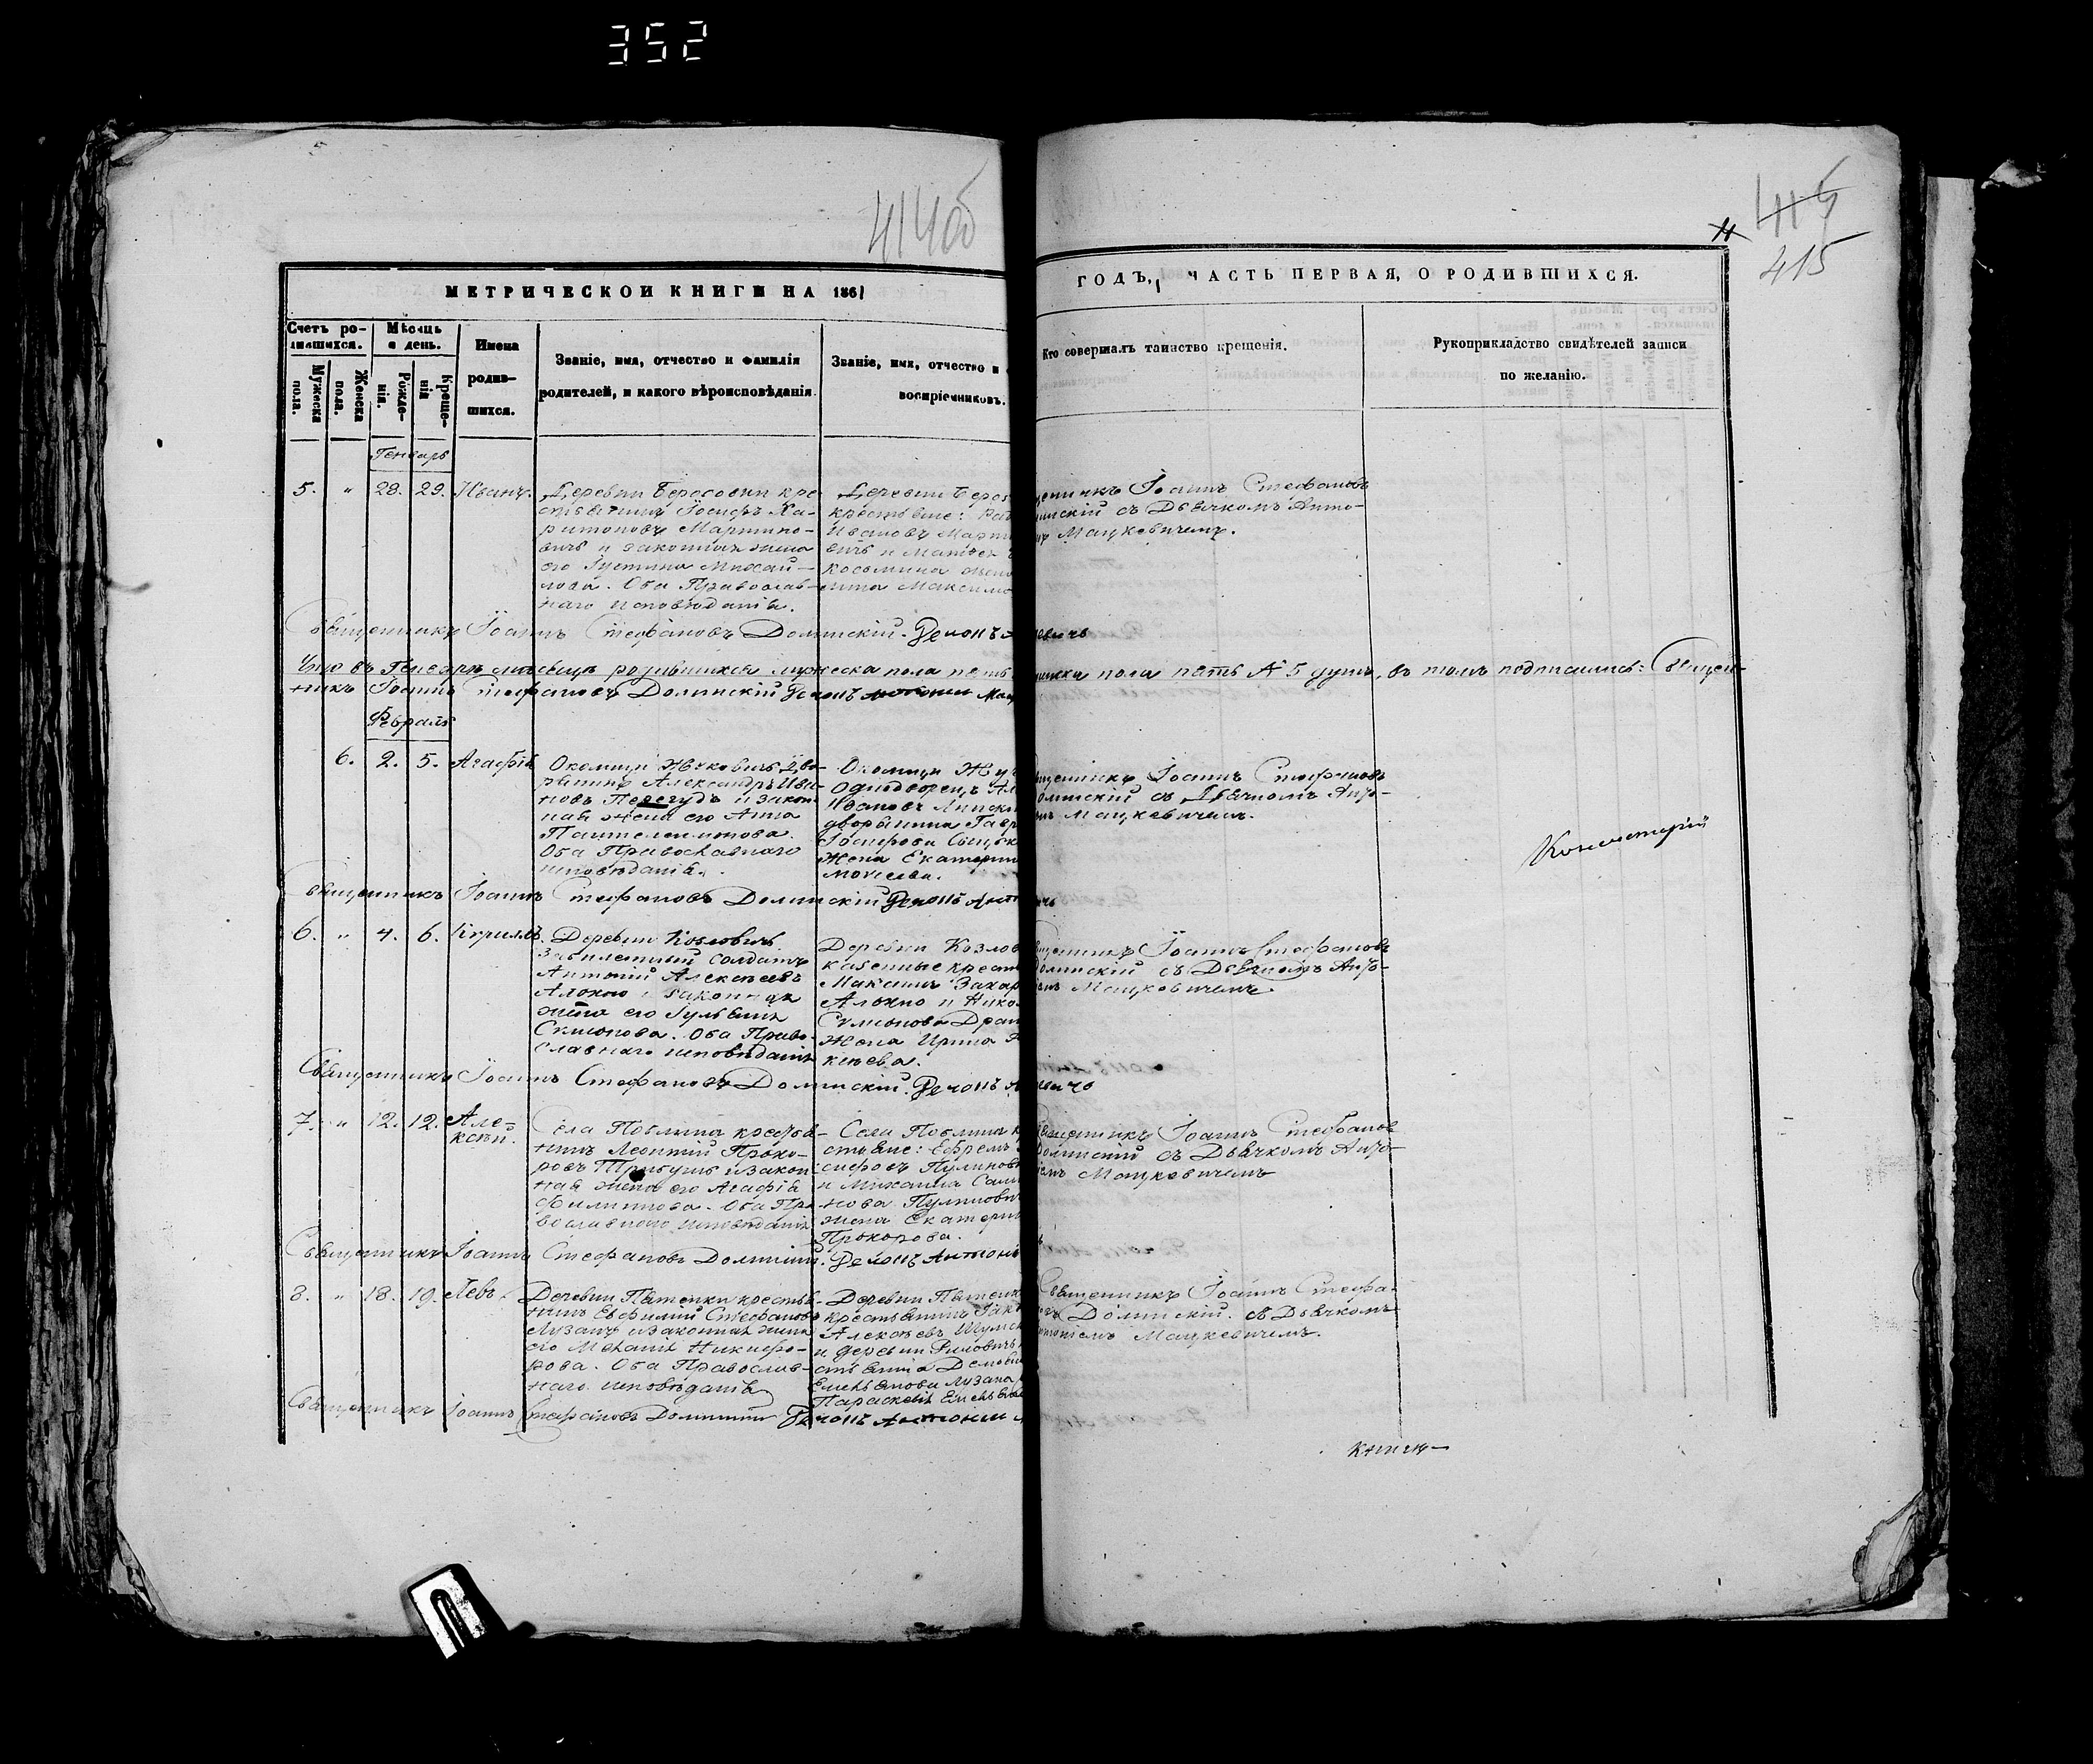 352
414об
415
415
11
МЕТРИЧЕСКОЙ КНИГИ НА 1861
ГОДЪ, ЧАСТЬ ПЕРВАЯ, О РОДИВШИХСЯ.
Счетъ ро-
дившихся.
Мужеска
пола.
Женска
пола.
Мѣсяцъ
и день.
Рожде-
нія.
Креще-
нія
Имена
родив-
шихся.
Званіе, имя, отчество и фамилія
родителей, и какого вѣроисповѣданія.
Званіе, имя, отчество и
воспріемниковъ.
Кто совершалъ таинство крещенія.
Рукоприкладство свидѣтелей записи
по желанію.
Генварь
5. " 28. 29. Иванъ.
Деревни Бересовки кре-
стьянинъ Іосифъ Ха-
ритоновъ Мартино-
вичъ и законная жена
его Густина Михай-
лова. Оба Православ-
наго исповѣданія.
Деревни Берес
крестьяне:
Ивановъ Март
вичъ и
Косьмина
Максимо
щенникъ Іоаннъ Стефановъ
инскій съ Дьячкомъ Анто-
Мацкевичемъ.
Священникъ Іоаннъ Стефановъ Долинскій.
Что въ Генварѣ мѣсяцѣ родившихся мужеска пола пять
нска пола пять 5 душъ, въ томъ подписались: Священ-
никъ Іоаннъ Стефановъ Долинскій
Февраль
6. 2. 5. Агафія
Околицы Жуковичъ Дво-
рянинъ Александръ Ива-
новъ Перегудъ и закон-
ная жена его Анна
Пантелеимонова.
Оба Православнаго
исповѣданія.
Околицы Жу
Однодворецъ Ал
Ивановъ Липски
дворянина Гавр
Іосифова
Жена Екатерин
Моисеева.
щенникъ Іоаннъ Стефановъ
Долинскій съ Дьячкомъ Анто-
Мацкевичемъ.
Священникъ Іоаннъ Стефановъ Долинскій
6. " 4. 6. Кириллъ.
Деревни Козловичъ
Забилетный Солдатъ
Антоній Алексѣевъ
Алохно и законная
жена его Гульянія
Симонова. Оба Право-
славнаго исповѣданія
Деревни Козлов
казенные крест
Максимъ Захар
Алохно и Нико
Симонова Дран
Жена Ирина
кѣева.
щенникъ Іоаннъ Стефановъ
Долинскій съ Дьячкомъ Анто-
Мацкевичемъ.
Священникъ Іоаннъ Стефановъ Долинскій.
7. " 12. 12. Але-
ксѣй.
Села Поблина крестья-
нинъ Леонтій Прохо-
ровъ Трибушъ и закон-
ная жена его Агафія
Филиппова. Оба Пра-
вославнаго исповѣданія
Села Поблина к
стьяне: Ефремъ
сифовъ Пулинов
и Михаила Сами
нова Пулинович
жена Екатерин
Прохорова.
Священникъ Іоаннъ Стефанов
Долинскій съ Дьячкомъ Анто-
Мацкевичемъ
Священникъ Іоаннъ Стефановъ Долинскій.
8. " 18. 19. Левъ.
Деревни Патенки крестья-
нинъ Евфимій Стефановъ
Лузанъ и законная жена
его Меланія Никифо-
рова. Оба Православ-
наго исповѣданія
Деревни Патенк
крестьянинъ
Алексѣевъ Шумск
и деревни Риловичъ
стьянина
Емельянова Лузана
Параскевія Емелья
Священникъ Іоаннъ Стефа-
Долинскій. съ Дьячкомъ
Мацкевичемъ.
Священникъ Іоаннъ Стефановъ Долинскій
Консисторіи